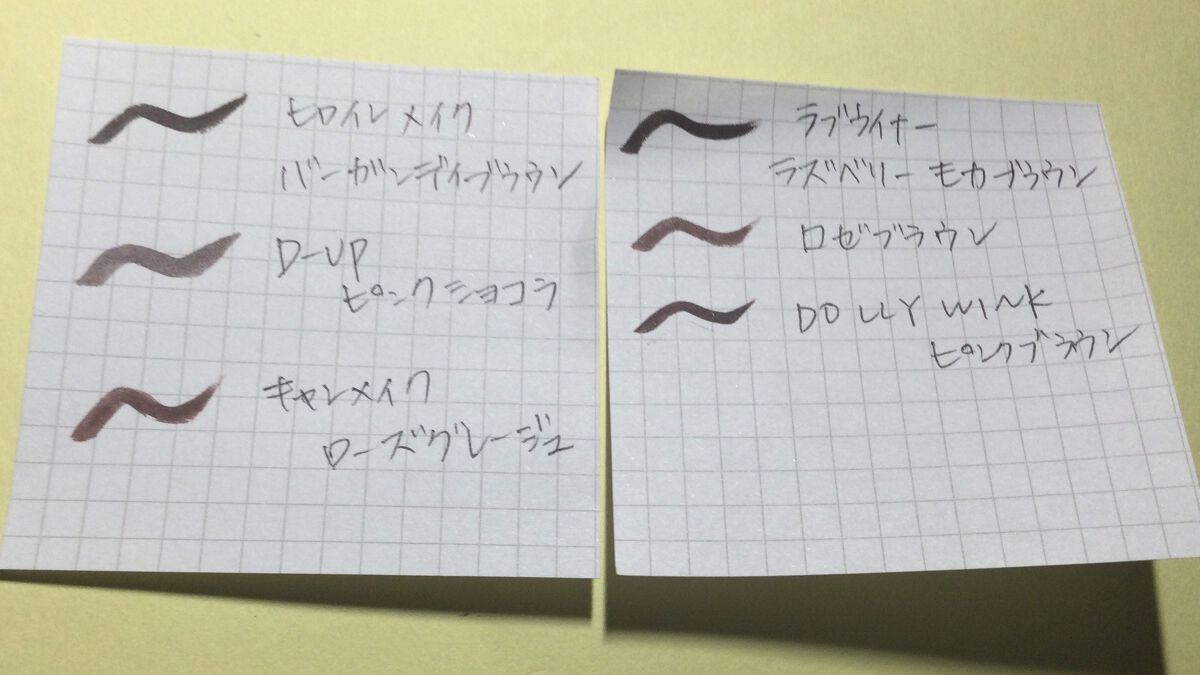 ヒロインメイク
バーガンディブラウン
D-UP
ピンクショコラ
キャンメイク
ローズグレージュ
ラブウイナー
ラズベリーモカブラウン
ロゼブラウン
DOLLY WINK
ピンクブラウン